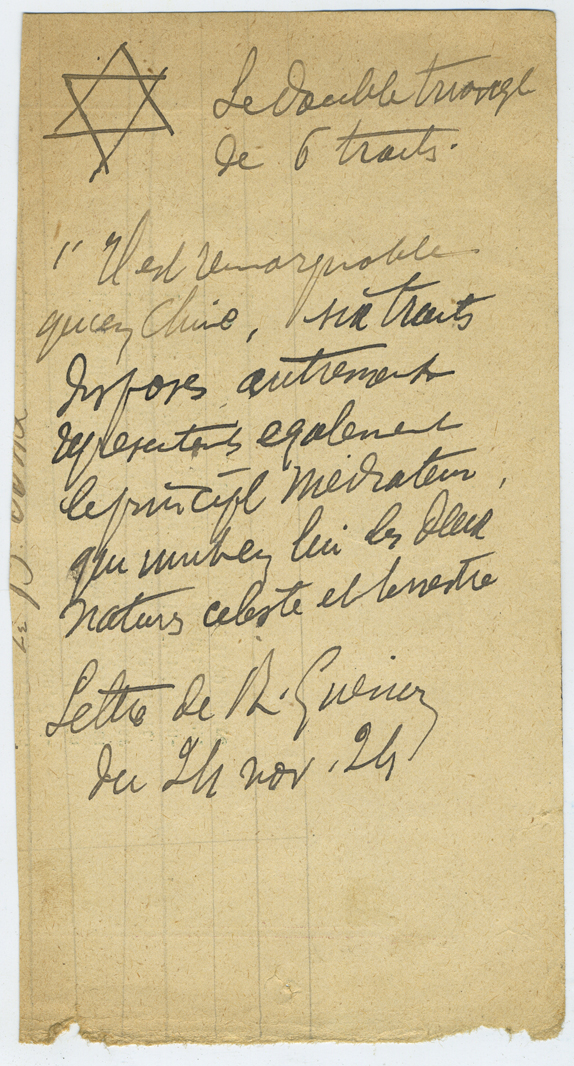 Le double triangle
de 6 traits.
" Il est remarquable
qu'en Chine, six traits
disposés autrement
représentent également
le principe médiateur,
qui unit en lui les deux
natures céleste et terrestre
Lettre de R. Guénon
du 24 nov. 24